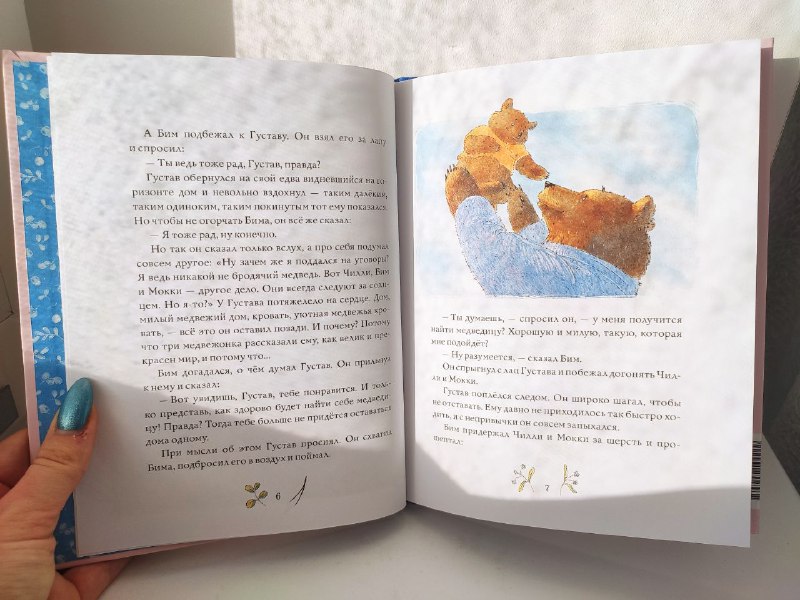 А Бим подбежал к Густаву. Он взял его за лапу
и спросил:
— Ты ведь тоже рад, Густав, правда?
Густав обернулся на свой едва видневшийся на го-
ризонте дом и невольно вздохнул — таким далёким,
таким одиноким, таким покинутым тот ему показался.
Но чтобы не огорчать Бима, он всё же сказал:
— Я тоже рад, ну конечно.
Но так он сказал только вслух, а про себя подумал
совсем другое: «Ну зачем же я поддался на уговоры?
Я ведь никакой не бродячий медведь. Вот Чилли, Бим
и Мокки — другое дело. Они всегда следуют за солн-
цем. Но я-то?» У Густава потяжелело на сердце. Дом,
милый медвежий дом, кровать, уютная медвежья кро-
вать, — всё это он оставил позади. И почему? Потому
что три медвежонка рассказали ему, как велик и пре-
красен мир, и потому что...
Бим догадался, о чём думал Густав. Он прильнул
к нему и сказал:
— Вот увидишь, Густав, тебе понравится. И толь-
ко представь, как здорово будет найти себе медведи-
цу! Правда? Тогда тебе больше не придётся оставаться
дома одному.
При мысли об этом Густав просиял. Он схватил
Бима, подбросил его в воздух и поймал.
6
— Ты думаешь, — спросил он, — у меня получится
найти медведицу? Хорошую и милую, такую, которая
мне подойдёт?
— Ну разумеется, — сказал Бим.
Он спрыгнул с лап Густава и побежал догонять Чил-
ли и Мокки.
Густав поплёлся следом. Он широко шагал, чтобы
не отставать. Ему давно не приходилось так быстро хо-
дить, и с непривычки он совсем запыхался.
Бим придержал Чилли и Мокки за шерсть и про-
шептал:
7